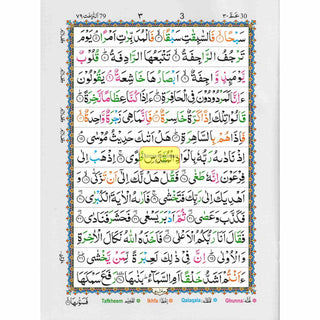 ٧٩ النّٰزعٰت 79 ٣ 3 عمّ ٣٠ 30
سَبْحًا ۙ فَالسّٰبِقٰتِ سَبْقًا ۙ فَالْمُدَبِّرٰتِ اَمْرًا ۘ يَوْمَ
تَرْجُفُ الرَّاجِفَةُ ۙ تَتْبَعُهَا الرَّادِفَةُ ؕ قُلُوْبٌ
يَّوْمَىِٕذٍ وَّاجِفَةٌ ۙ اَبْصَارُهَا خَاشِعَةٌ ۘ يَقُوْلُوْنَ
ءَاِنَّا لَمَرْدُوْدُوْنَ فِي الْحَافِرَةِ ؕ ءَاِذَا كُنَّا عِظَامًا نَّخِرَةً ؕ
قَالُوْا تِلْكَ اِذًا كَرَّةٌ خَاسِرَةٌ ۘ فَاِنَّمَا هِيَ زَجْرَةٌ وَّاحِدَةٌ ۙ
فَاِذَا هُمْ بِالسَّاهِرَةِ ؕ هَلْ اَتٰىكَ حَدِيْثُ مُوْسٰى ۘ
اِذْ نَادٰىهُ رَبُّهٗ بِالْوَادِ الْمُقَدَّسِ طُوًى ۚ اِذْهَبْ اِلٰى
فِرْعَوْنَ اِنَّهٗ طَغٰى ۖ فَقُلْ هَلْ لَّكَ اِلٰٓى اَنْ تَزَكّٰى ۙ وَ
اَهْدِيَكَ اِلٰى رَبِّكَ فَتَخْشٰى ۚ فَاَرٰىهُ الْاٰيَةَ الْكُبْرٰى ۖ
فَكَذَّبَ وَعَصٰى ۖ ثُمَّ اَدْبَرَ يَسْعٰى ۖ فَحَشَرَ فَنَادٰى ۖ
فَقَالَ اَنَا رَبُّكُمُ الْاَعْلٰى ۖ فَاَخَذَهُ اللّٰهُ نَكَالَ الْاٰخِرَةِ
وَالْاُوْلٰى ؕ اِنَّ فِيْ ذٰلِكَ لَعِبْرَةً لِّمَنْ يَّخْشٰى ؕ
ءَاَنْتُمْ اَشَدُّ خَلْقًا اَمِ السَّمَآءُ ؕ بَنٰىهَا ۥ رَفَعَ سَمْكَهَا
Tafkheem Ikhfa Qalaqala Ghunna فَسَوّٰىهَا